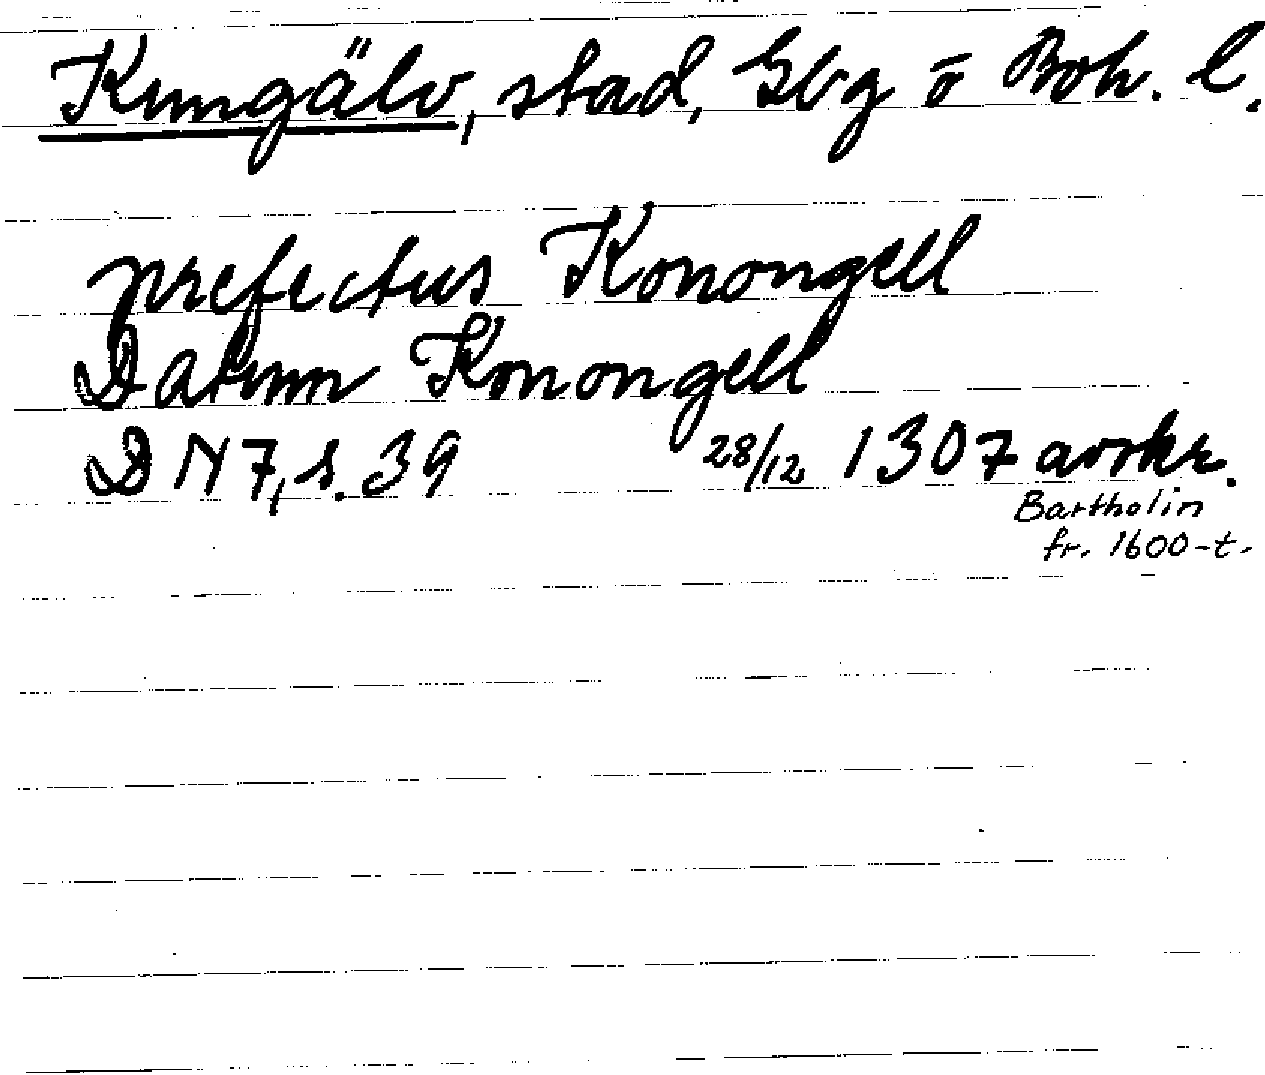 Kungälv, stad, Gbg o Boh. l.
prefectus Konongell
Datum Konongell
DN 7, s. 39 28/12 1307 avskr.
Bartholin
fr. 1600-t.